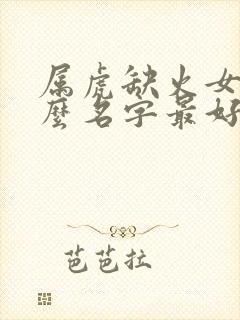 属虎缺火女
麼名字最好
芭芭拉